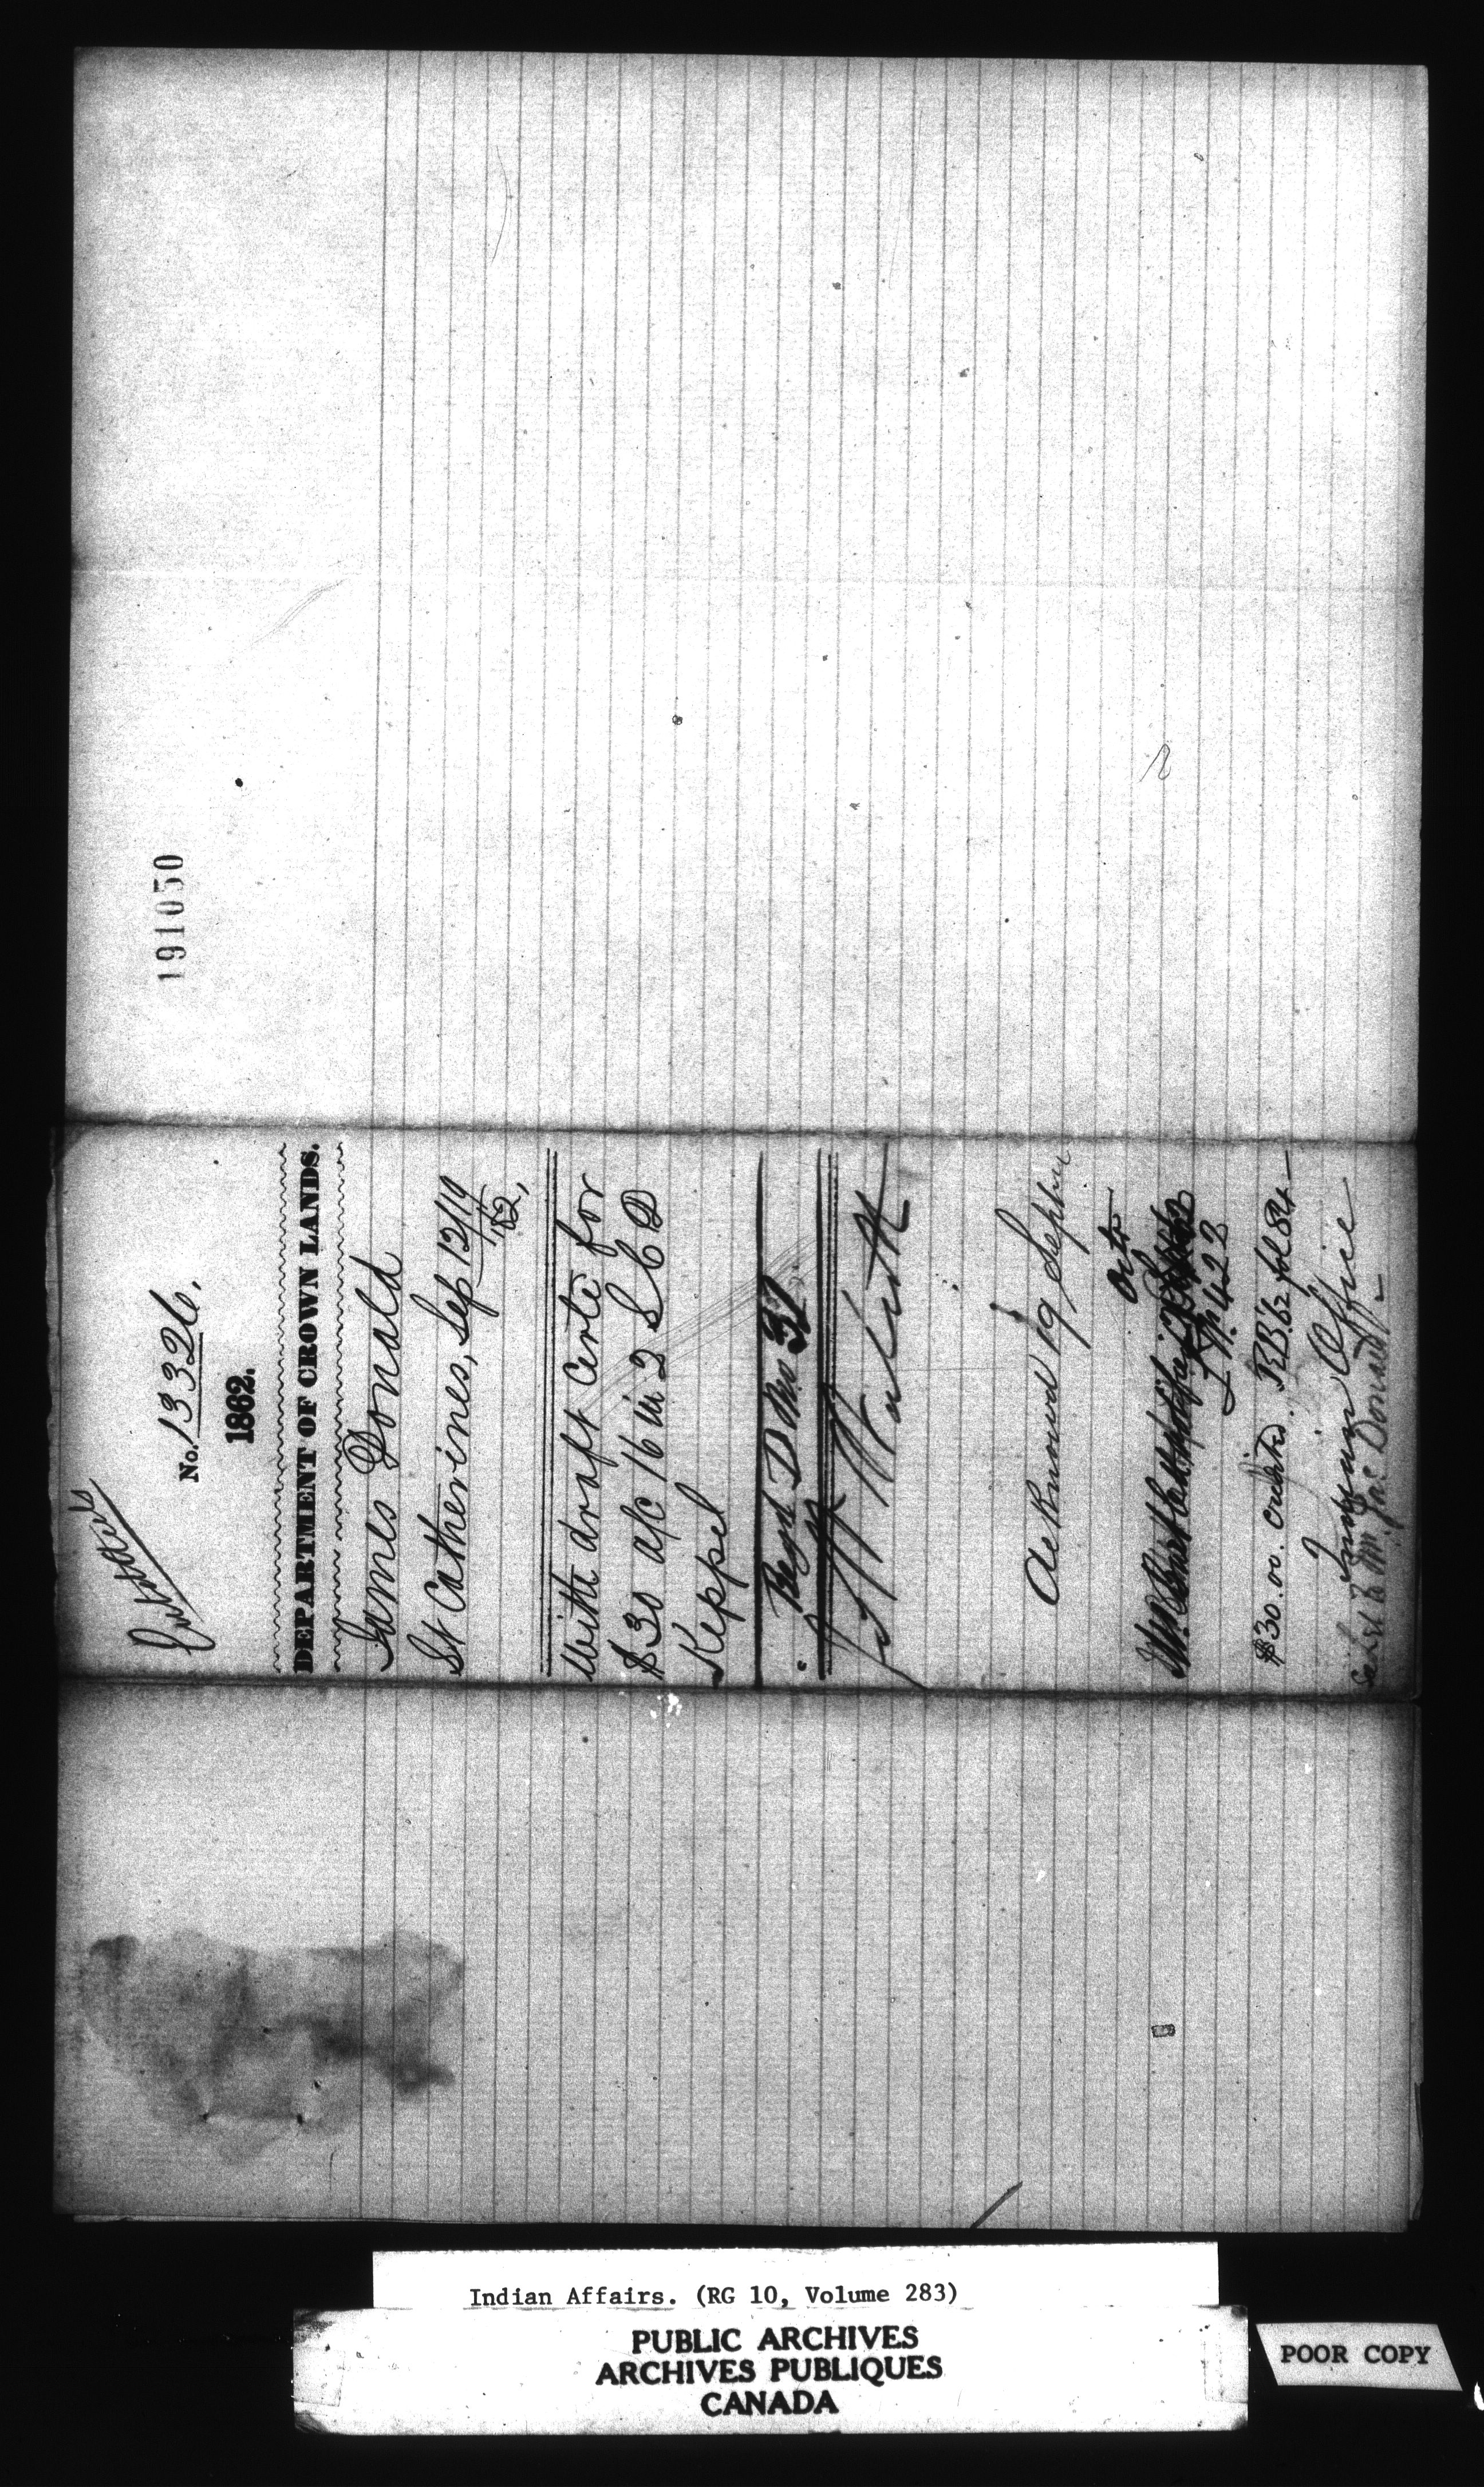 191050
No. 13326.
1862.
DEPARTMENT OF CROWN LANDS.
James Donald
St Catherines, Sep 12/19
/62,
With draft Certe for
$30 a/c 16 in 2 S C D
Keppel
Regd D No 32
Acknowd 19 Septr
L. M. 422
$30.00. credited. J.E.B. '62 fol 84—
Office
Sale to Mr. Jas. Donald—
Indian Affairs. (RG 10, Volume 283)
PUBLIC ARCHIVES
ARCHIVES PUBLIQUES
CANADA
POOR COPY